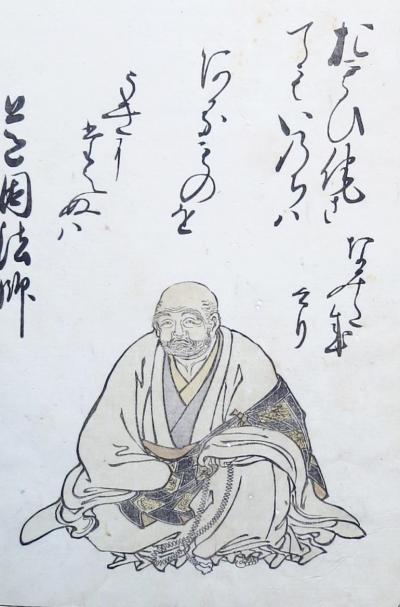 おもひ侘さ
てもいのちハ
あるものを
うきに
たへぬハ
なみた成
けり
道因法師